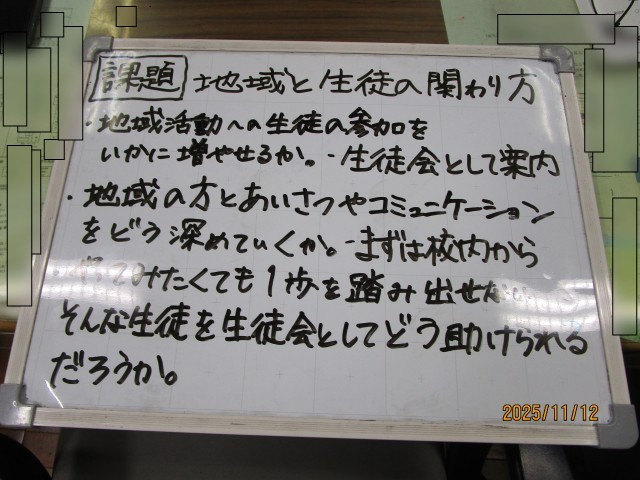 課題 地域と生徒の関わり方
・地域活動への生徒の参加を
いかに増やせるか。-生徒会として案内
・地域の方とあいさつやコミュニケーション
をどう深めていくか。-まずは校内から
たくても1歩を踏み出せな
そんな生徒を生徒会としてどう助けられる
だろうか。
2025/11/12